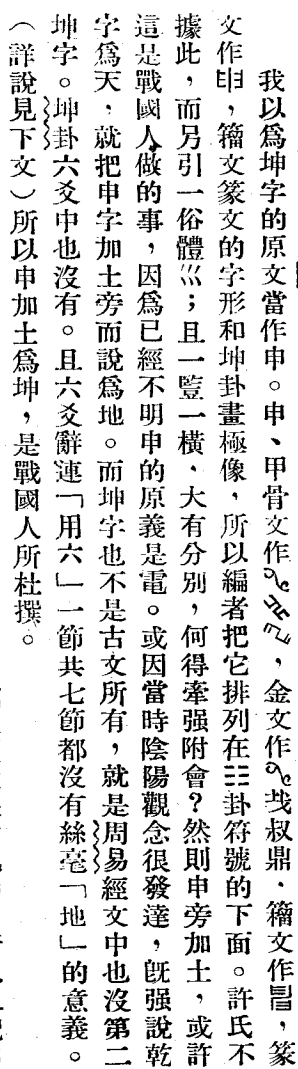 我以爲坤字的原文當作申。申、甲骨文作，金文作戕叔鼎．籀文作，篆
文作，籀文篆文的字形和坤卦畫極像，所以編者把它排列在☷卦符號的下面。許氏不
據此，而另引一俗體巛；且一豎一橫．大有分別，何得牽强附會？然則申旁加土，或許
這是戰國人做的事，因爲已經不明申的原義是電。或因當時陰陽觀念很發達，旣强說乾
字爲天，就把申字加土旁而說爲地。而坤字也不是古文所有，就是周易經文中也沒第二
坤字。坤卦六爻中也沒有。且六爻辭連「用六」一節共七節都沒有絲毫「地」的意義。
（詳說見下文）所以申加土爲坤，是戰國人所杜撰。